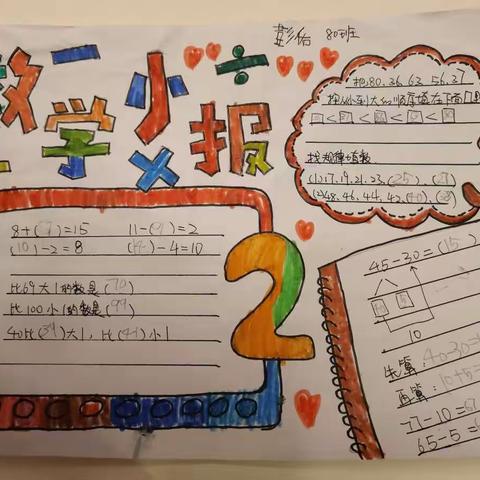 数学小报
彭佑 80班
把80、36、63、56、27
按从小到大的顺序填在下面□里
□<□<□<□<□
找规律填数
(1)17、19、21、23、(25)、(27)
(2)48、46、44、42、(40)、(38)
8+(7)=15 11-(9)=2
(10)-2=8 (14)-4=10
比69大1的数是(70)
比100小1的数是(99)
40比(39)大1,比(41)小1
2
45-30=(15)
10
先算:40-30=
再算:10+5=
77-10=67
65-5=